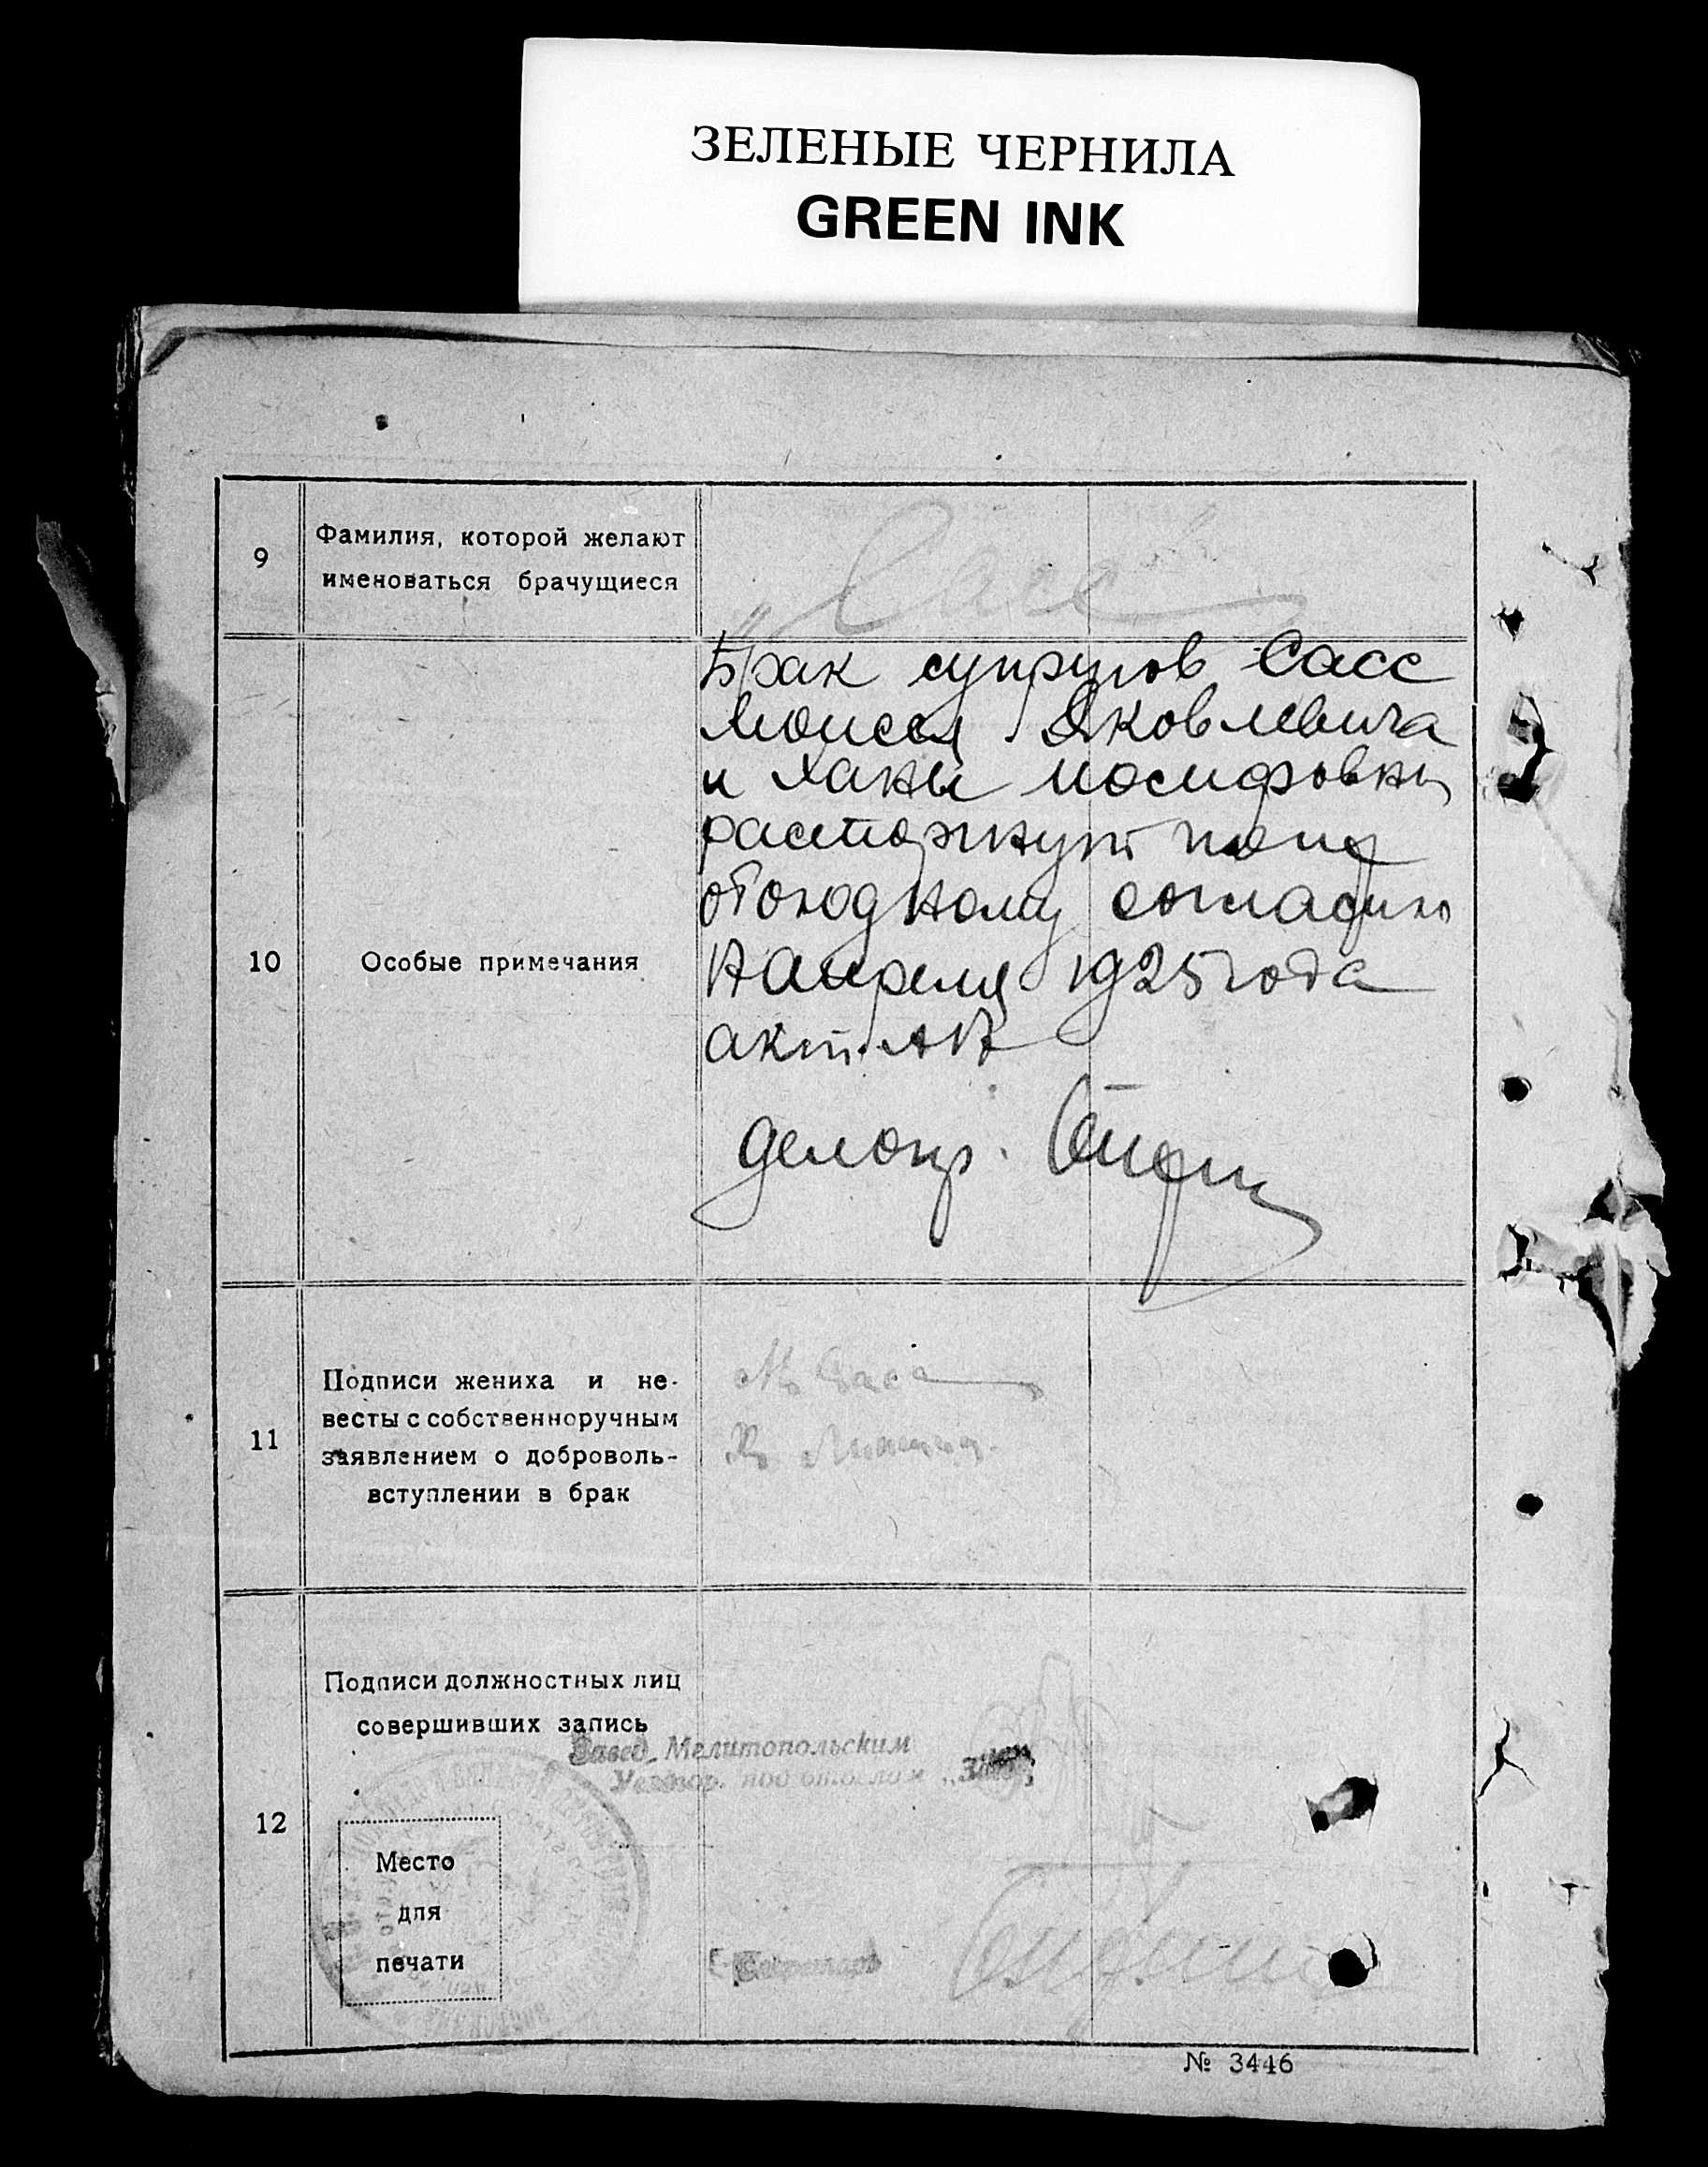 ЗЕЛЕНЫЕ ЧЕРНИЛА
GREEN INK
9
Фамилия, которой желают
именоваться брачущиеся
„Сасс"
10
Особые примечания
Брак супругов Сасс
Моисея Яковлевича
и Ханы Иосифовны
расторжгнут по
обоюдному согласию
апреля 1925 года
акт
делопр.
11
Подписи жениха и не-
весты с собственноручным
заявлением о доброволь-
вступлении в брак
М. Сасс
Х.
12
Подписи должностных лиц
совершивших запись
Завед. Мелитопольским
под отделом
Место
для
печати
№ 3446